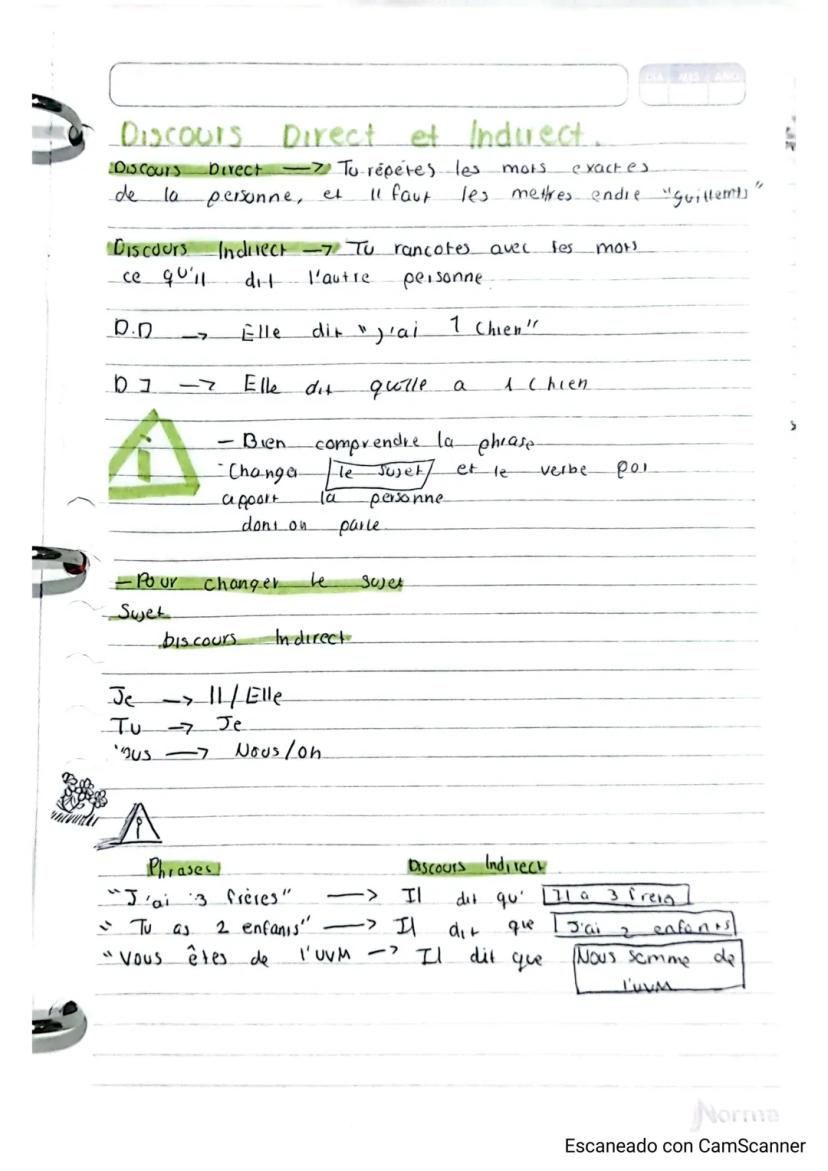 DIA MES AÑO
Discours Direct et Indirect.
Discours Direct —> Tu répétes les mots exactes
de la personne, et Il faut les mettres endre "guillemts"
Discours Indirect —> Tu rancotes avec tes mots
ce qu'il dit l'autre personne
D.D —> Elle dit "j'ai 1 Chien"
D I —> Elle dit qu'elle a 1 Chien
i
- Bien comprendre la phrase
- Changer le sujet et le verbe par
apport la personne
dont on parle
- Pour changer le sujet
Sujet
Discours Indirect
Je —> Il/Elle
Tu —> Je
Vous —> Nous/on
Phrases Discours Indirect
"J'ai 3 frères" —> Il dit qu' Il a 3 freres
"Tu as 2 enfants" —> Il dit que J'ai 2 enfants
"Vous êtes de l'UVM —> Il dit que Nous somme de
l'UVM
Norma
Escaneado con CamScanner